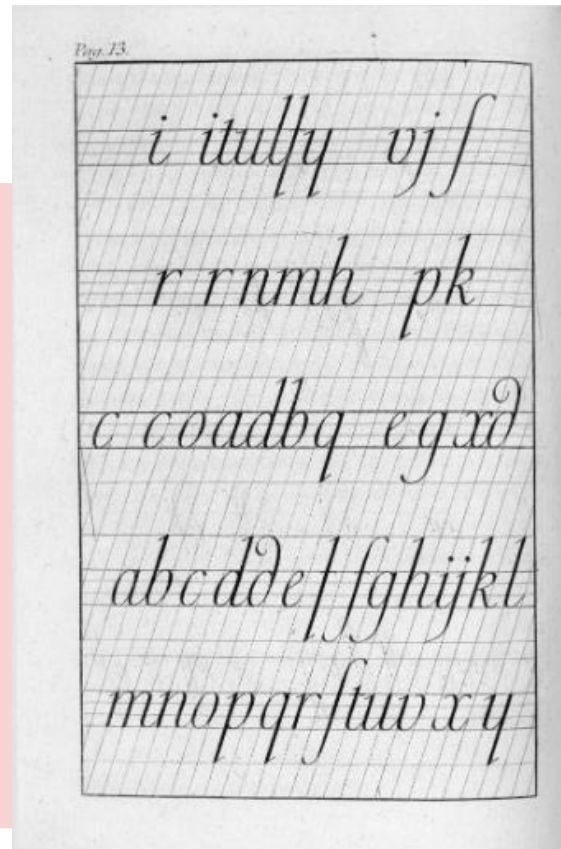 Pag. 13.
i itulſy vjſ
r rnmh pk
c coadbq egx∂
abcd∂eſ fghijkl
mnopqrſtuvxy